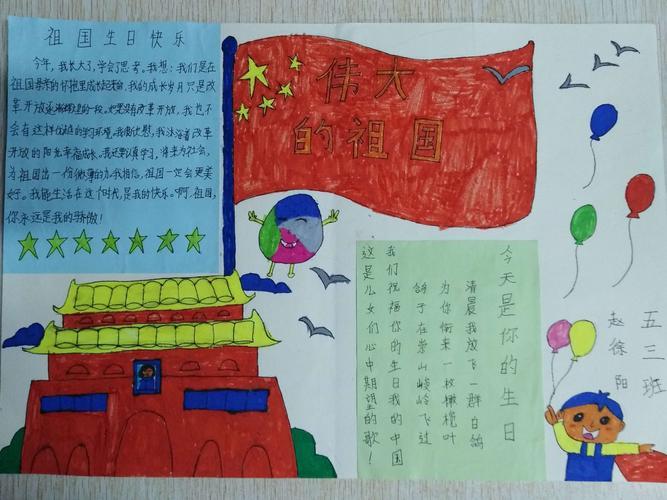 祖国生日快乐
今年,我长大了,学会了思考。我想:我们是在
祖国母亲的怀抱里成长起来的,我的成长岁月只是改
革开放的一段。如果没有改革开放,我也不
会有这样优越的学习环境。我很欣慰,我沐浴着改革
开放的阳光幸福成长。我还要认真学习,将来为社会,
为祖国出一份微薄的力。我相信,祖国一定会更美
好。我能生活在这个时代,是我的快乐。啊,祖国,
你永远是我的骄傲!
伟大
的祖国
今天是你的生日
清晨我放飞一群白鸽
为你衔来一枚橄榄叶
鸽子在崇山峻岭飞过
我们祝福你的生日我的中国
这是儿女们心中期望的歌!
五三班
赵徐阳